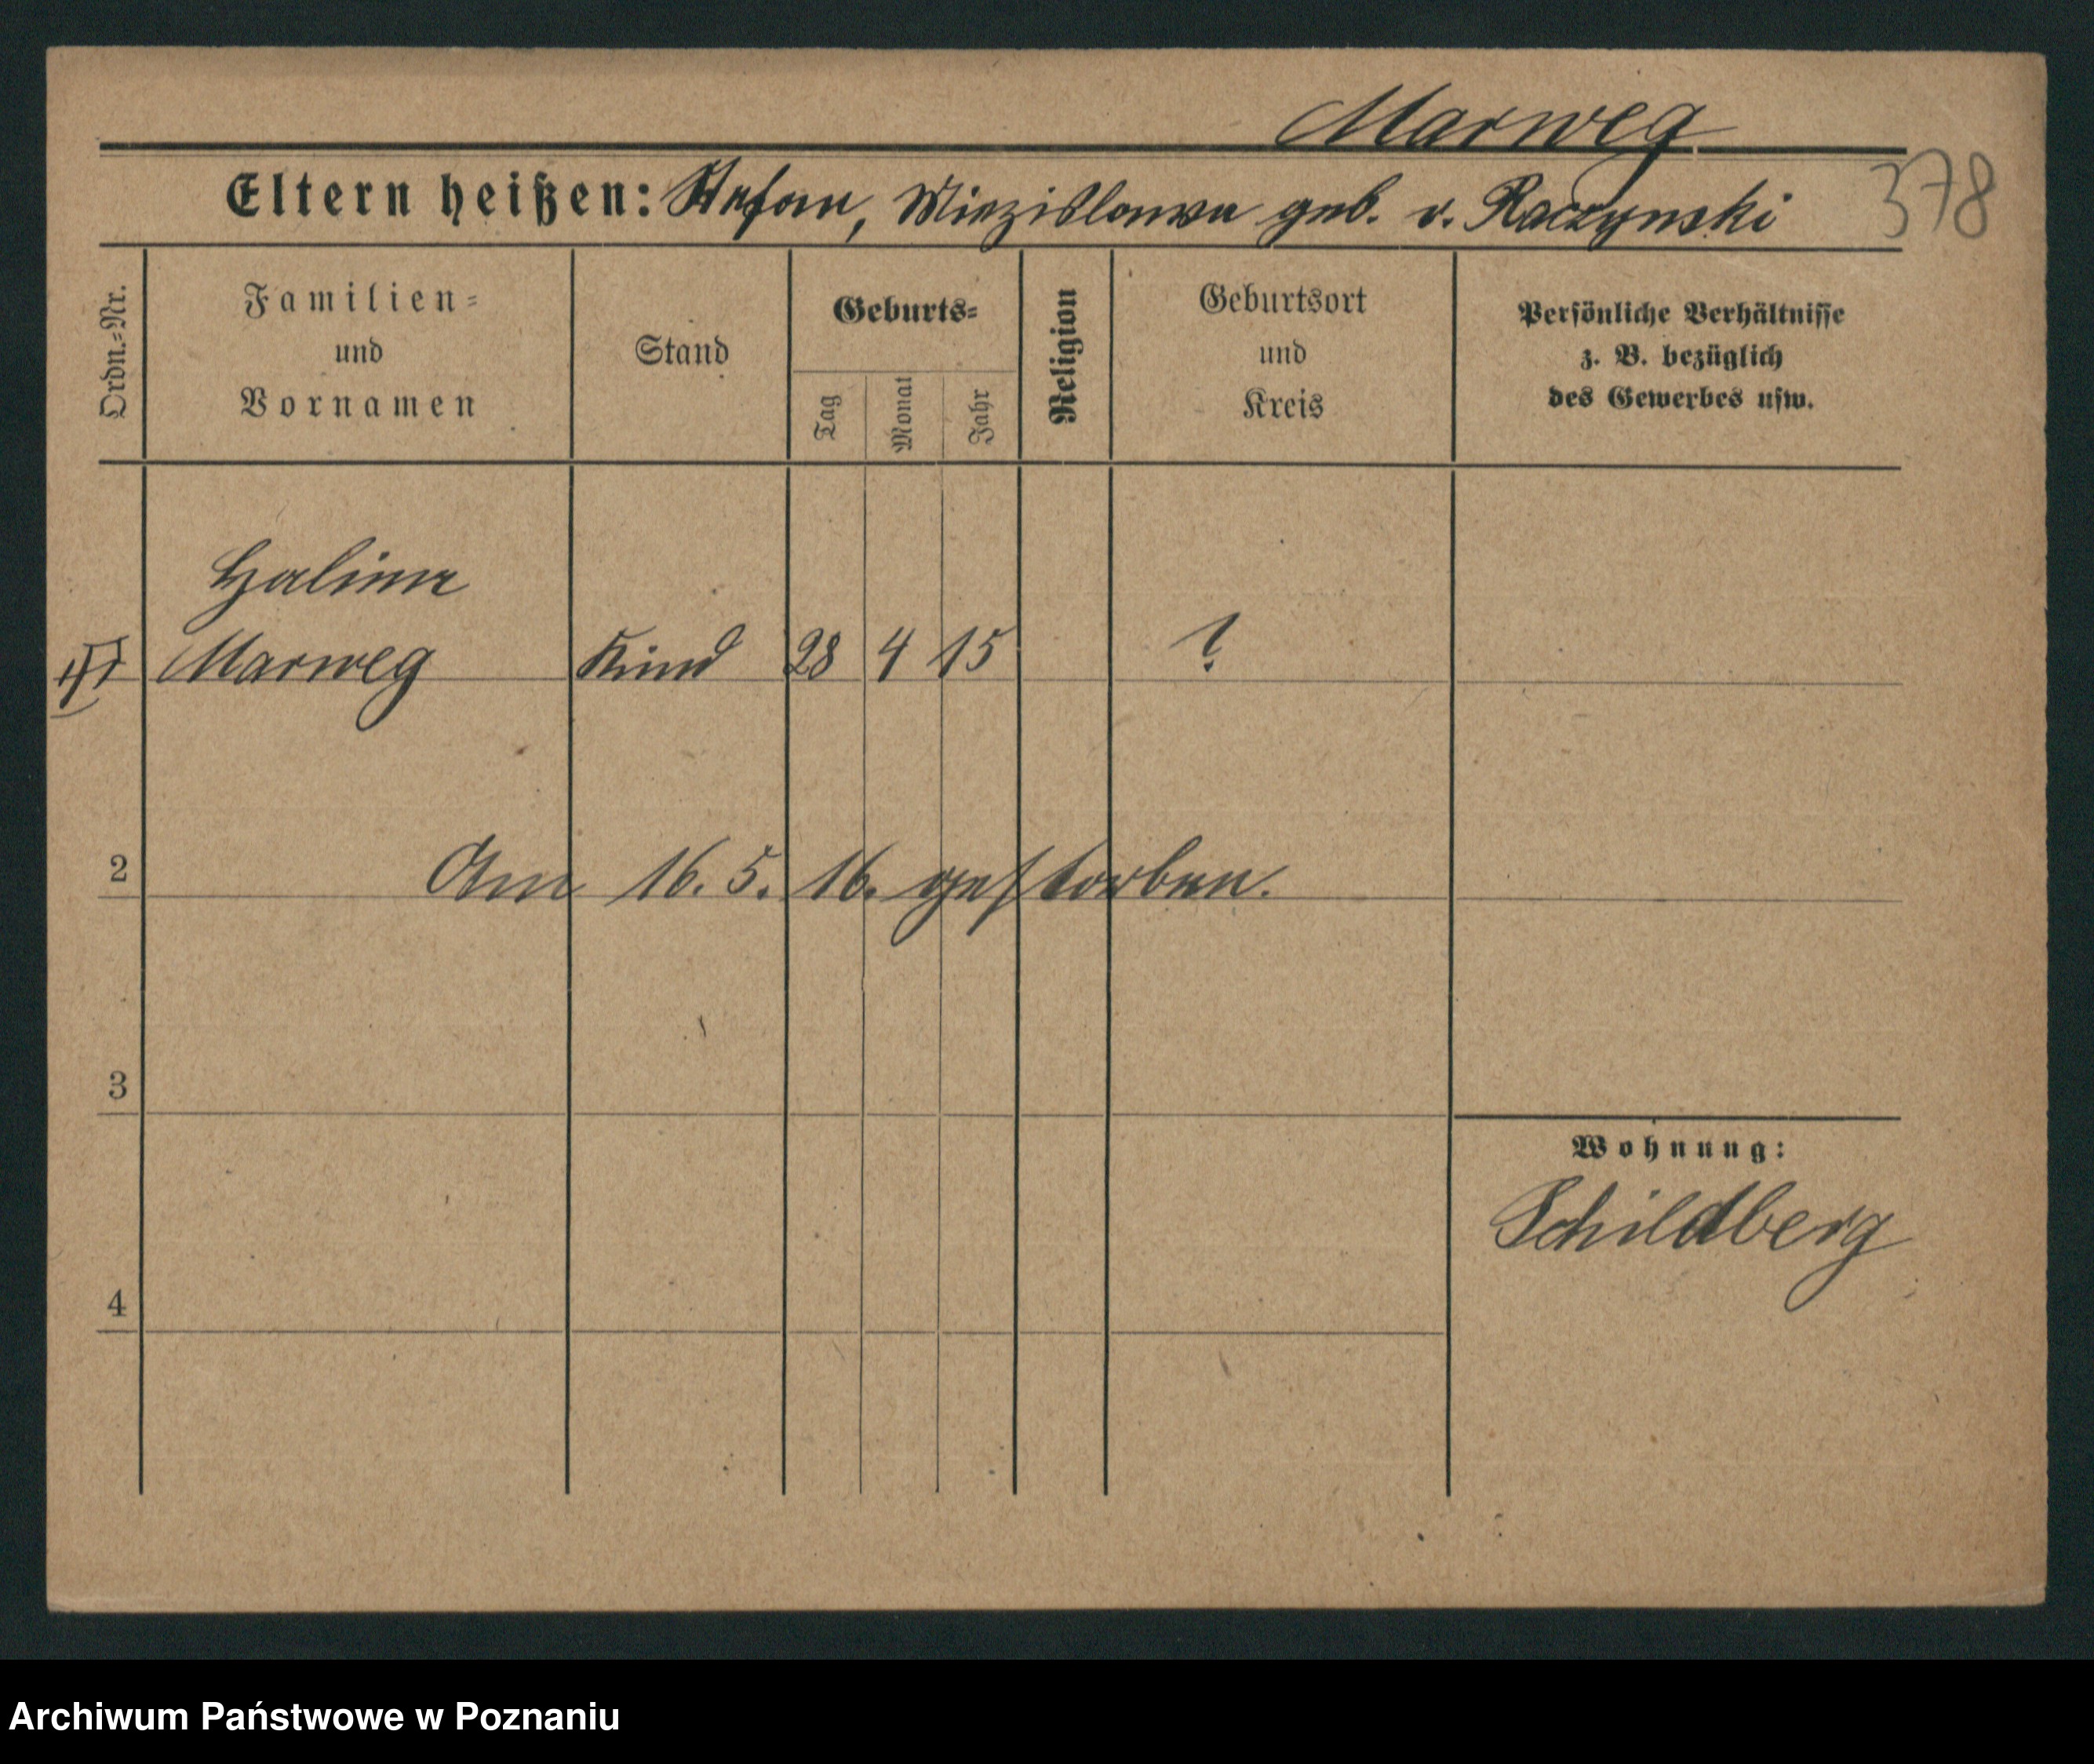 Marweg
Eltern heißen: Stefan, Miezislawa geb. v. Raczynski
378
Ordn.=Nr.
Familien=
und
Vornamen
Stand
Geburts=
Tag
Monat
Jahr
Religion
Geburtsort
und
Kreis
Persönliche Verhältnisse
z. B. bezüglich
des Gewerbes usw.
Halina
Marweg Kind 28 4 15 ?
2
Am 16. 5. 16. gestorben.
3
Wohnung:
Schildberg
4
Archiwum Państwowe w Poznaniu